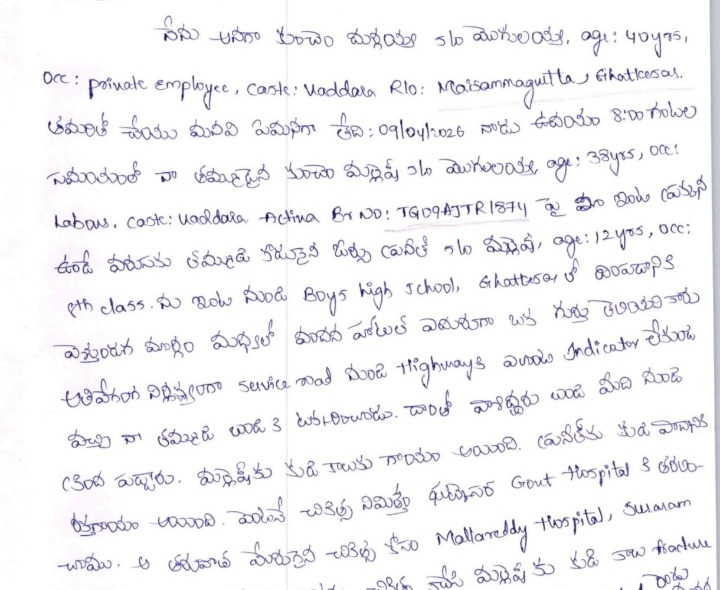 నేను అనగా కుంచెం దుర్గయ్య s/o మొగులయ్య, age: 40yrs,
occ: private employee, caste: Vaddara R/o: Maisammagutta, Ghatkesar.
తమరితో చేయు మనవి ఏమనగా తేది: 09/04/2026 నాడు ఉదయం 8:00 గంటల
సమయంలో నా తమ్ముడైన కుంచెం మల్లేష్ s/o మొగులయ్య, age: 38yrs, occ:
Labour, caste: Vaddara Activa Br NO: TG09AJTR1874 పై మా ఇంటి ప్రక్కనే
ఉండే వరుసకు తమ్ముడి కొడుకైన ప్రనీత్ s/o మల్లేష్, age: 12yrs, occ:
8th class. ను ఇంటి నుండి Boys high school, Ghatkesar లో దింపడానికి
వెళ్తుండగా మార్గం మధ్యలో హోటల్ ఎదురుగా ఒక గుర్తు తెలియని కారు
అతివేగంగా నిర్లక్ష్యంగా service road నుండి Highway కి ఎలాంటి Indicator లేకుండా
వచ్చి నా తమ్ముడి బండి కి టక్కరించినాడు. దాంతో వారిద్దరు బండి మీది నుండి
క్రింద పడ్డారు. మల్లేష్‌కు కుడి కాలుకు గాయం అయింది. ప్రనీత్‌కు కుడి పాదానికి
రక్తగాయం అయింది. వెంటనే చికిత్స నిమిత్తం ఘట్కేసర్ Govt Hospital కి తరలిం-
చాము. ఆ తరువాత మెరుగైన చికిత్స కోసం Mallareddy Hospital, Suraram
చికిత్స చేసి మల్లేష్ కు కుడి కాలు fracture
రెండు